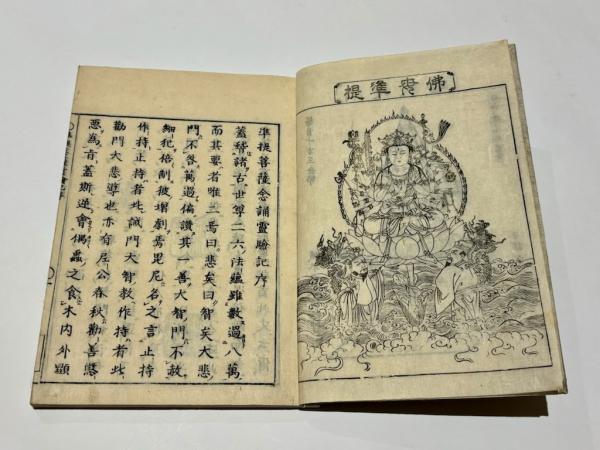 佛母準提
準提菩薩念誦靈驗記序
蓋稽諸古世尊二六法蘊雖數過八萬
而其要者唯二焉曰悲矣曰智矣大悲
門不咎萬過偏讚其一善大智門不赦
細犯倍制劇焉毘尼名之言止持
作持止持者此誡門大智教作持者此
勸門大悲導也亦有尼公春秋勸善懲
惡為肯蓋斯逆會偶蟲之食木内外顯